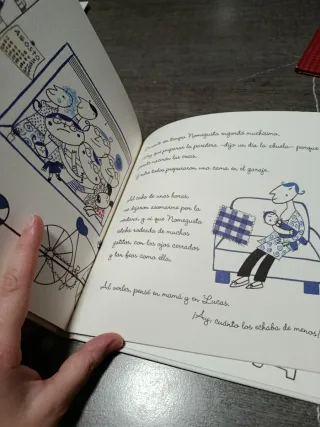 AGOSTO
tiempo Nomegusta engordó muchísimo.
que preparar la paridera —dijo un día la abuela— porque
nacerán las crías.
Y entre todos preparamos una cama en el garaje.
Al cabo de unas horas,
me dejaron asomarme por la
ventana y vi que Nomegusta
estaba rodeada de muchos
gatitos con los ojos cerrados
y tan feos como ella.
Al verlos, pensé en mamá y en Lucas.
¡Ay, cuánto los echaba de menos!